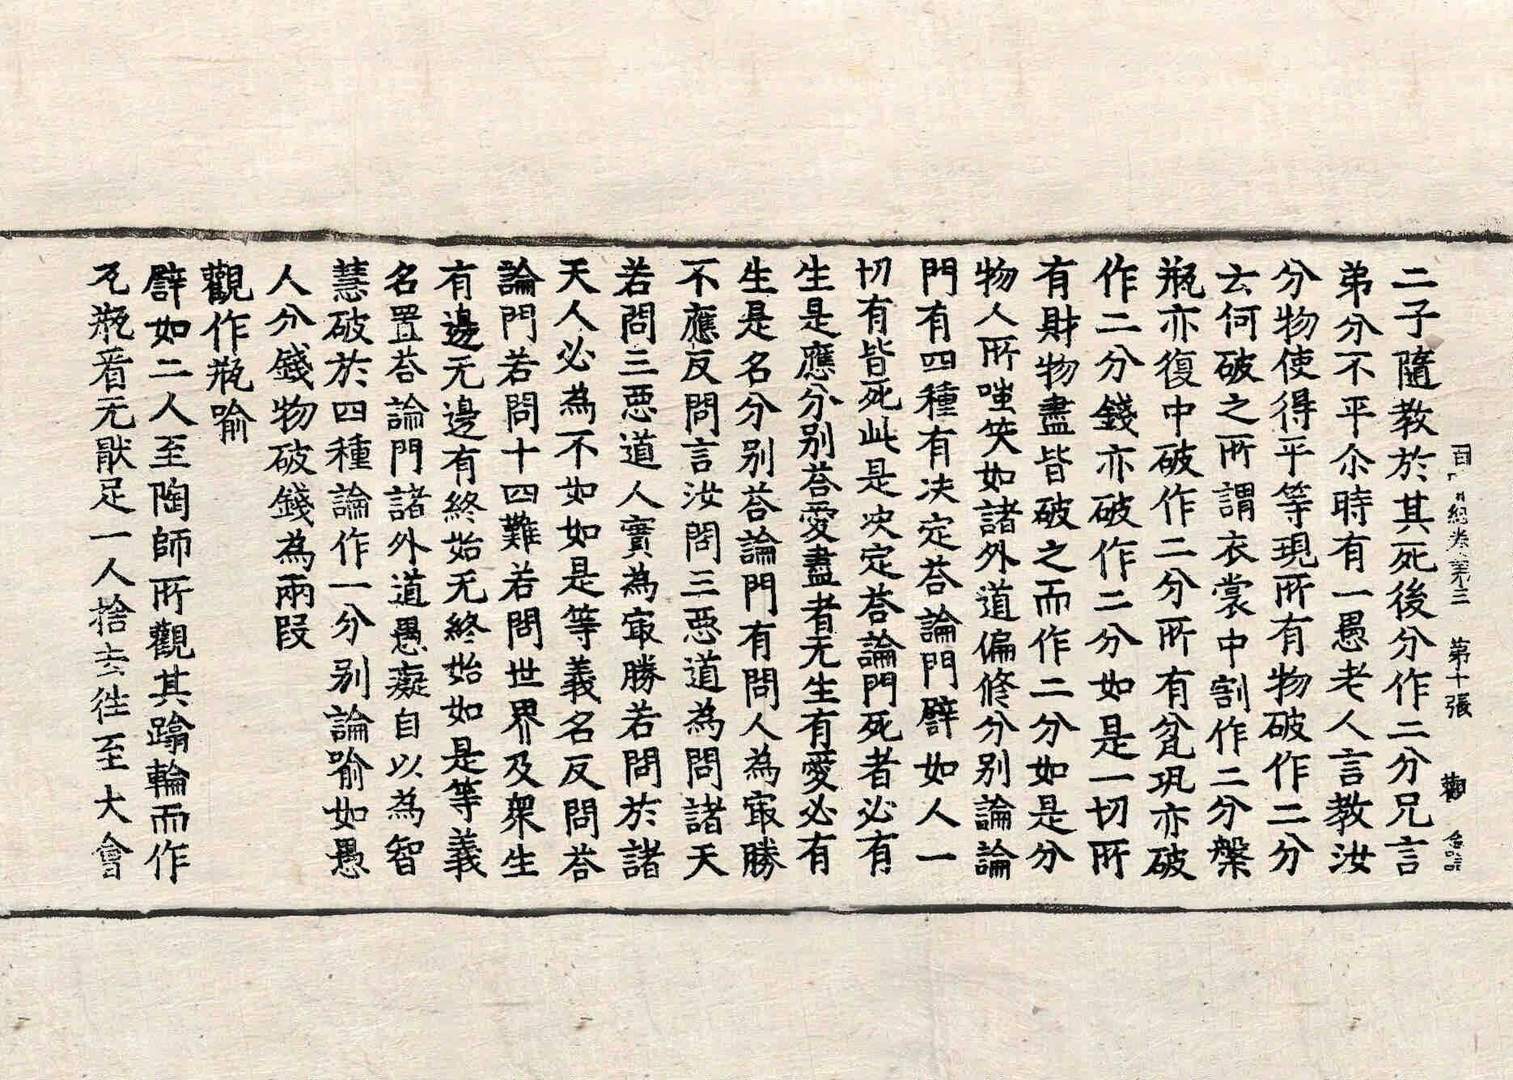 百喻經卷第三 第十張 觀
二子隨教於其死後分作二分兄言
弟分不平尒時有一愚老人言教汝
分物使得平等現所有物破作二分
云何破之所謂衣裳中割作二分槃
瓶亦復中破作二分所有瓮㼦亦破
作二分錢亦破作二分如是一切所
有財物盡皆破之而作二分如是分
物人所嗤笑如諸外道偏修分別論論
門有四種有决定荅論門譬如人一
切有皆死此是决定荅論門死者必有
生是應分別荅愛盡者无生有愛必有
生是名分別荅論門有問人為㝡勝
不應反問言汝問三惡道為問諸天
若問三惡道人實為㝡勝若問於諸
天人必為不如如是等義名反問荅
論門若問十四難若問世界及衆生
有邊无邊有終始无終始如是等義
名置荅論門諸外道愚癡自以為智
慧破於四種論作一分別論喻如愚
人分錢物破錢為兩段
觀作瓶喻
譬如二人至陶師所觀其蹹輪而作
瓦瓶看无猒足一人捨去往至大會